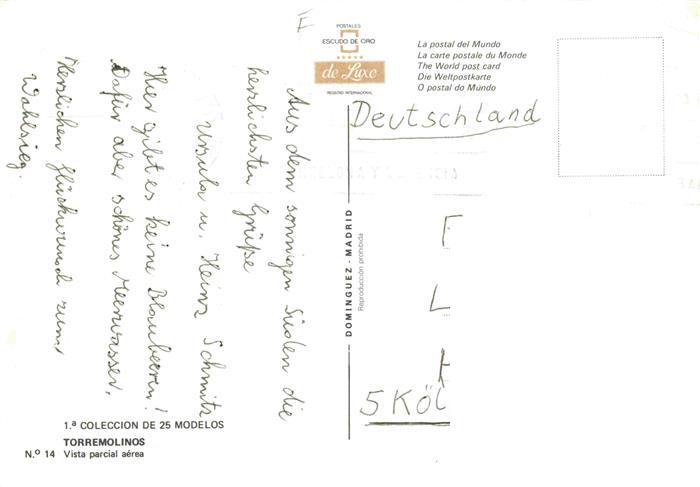 E
POSTALES
ESCUDO DE ORO
de Luxe
REGISTRO INTERNACIONAL
La postal del Mundo
La carte postale du Monde
The World post card
Die Weltpostkarte
O postal do Múndo
Aus dem sonnigen Süden die
herzlichsten Grüße
Ursula u. Heinz Schmitz
Hier gibt es keine Blaubeeren!
Dafür aber schönes Meerwasser.
Herzlichen Glückwunsch zum
Wahlsieg.
Deutschland
F
L
H
5 KÖL
DOMINGUEZ - MADRID
Reproducción prohibida
1.ª COLECCION DE 25 MODELOS
TORREMOLINOS
N.º 14 Vista parcial aérea